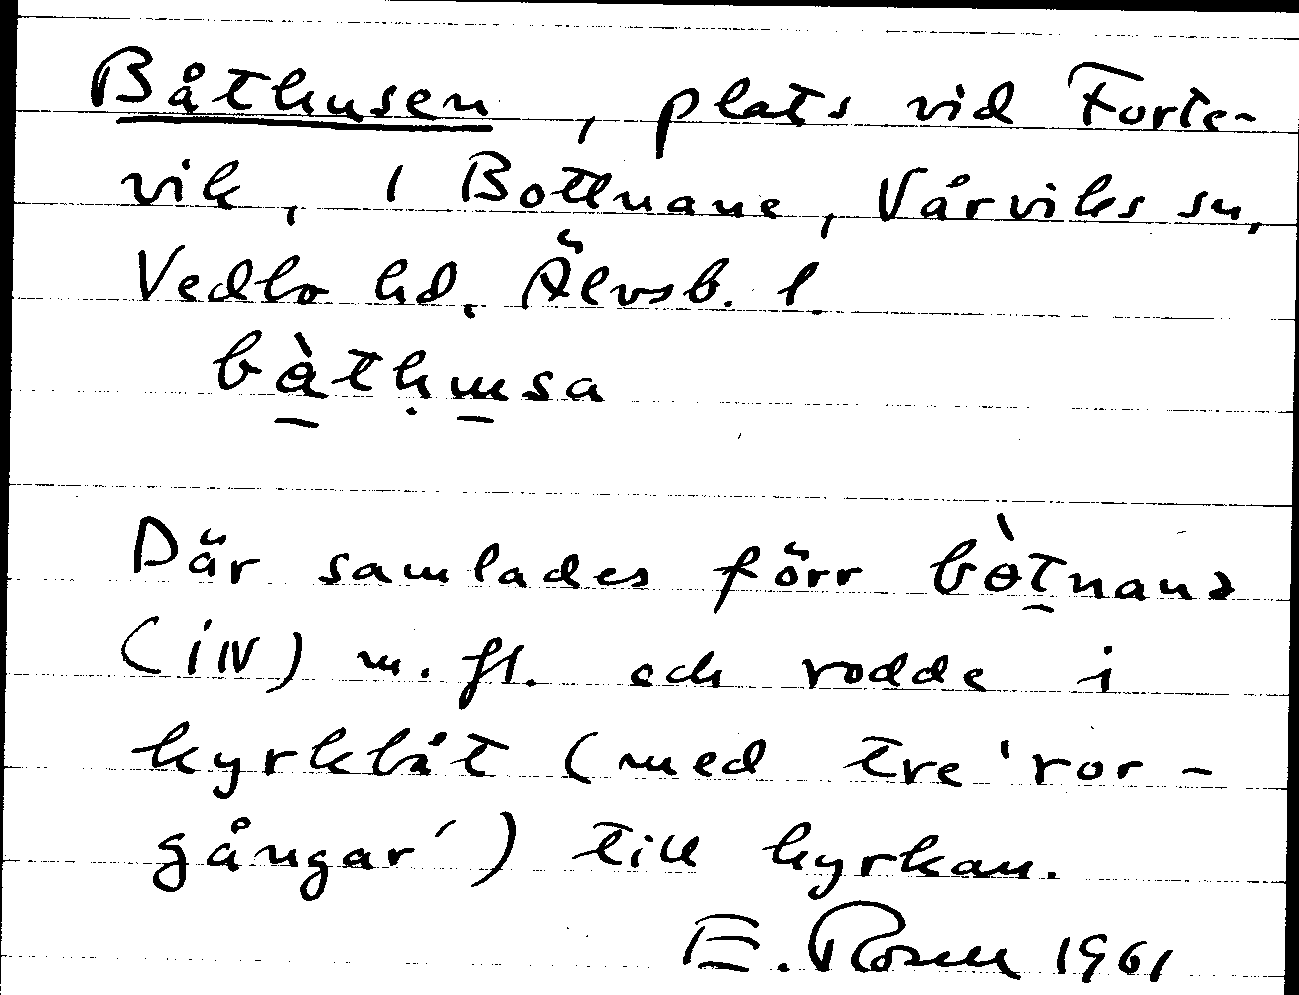 Båthusen, plats vid Furte-
vik, 1 Bottnane, Vårviks sn,
Vedbo hd. Älvsb. l.
bàtḥɯsa
Där samlades förr bòtnanə
(iN) m. fl. och rodde i
kyrkbåt (med tre 'ror-
gångar') till kyrkan.
E. Rosell 1961